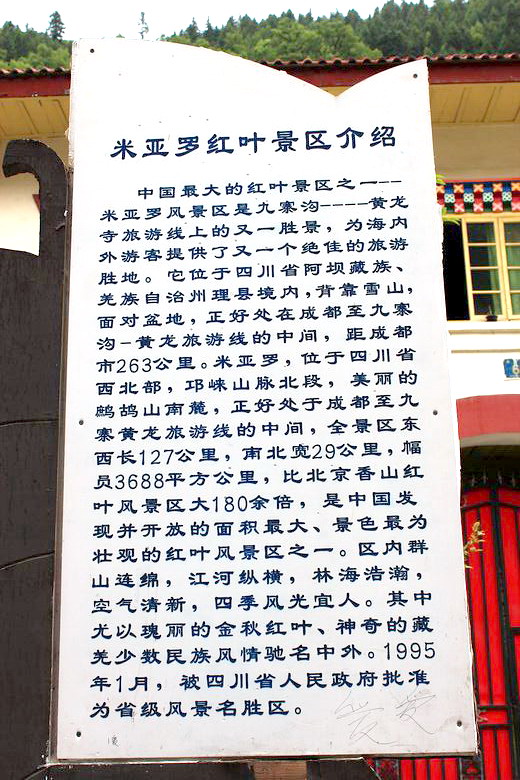 米亚罗红叶景区介绍
中国最大的红叶景区之一---
米亚罗风景区是九寨沟----黄龙
寺旅游线上的又一胜景，为海内
外游客提供了又一个绝佳的旅游
胜地。它位于四川省阿坝藏族、
羌族自治州理县境内，背靠雪山，
面对盆地，正好处在成都至九寨
沟-黄龙旅游线的中间，距成都
市263公里。米亚罗，位于四川省
西北部，邛崃山脉北段，美丽的
鹧鸪山南麓，正好处于成都至九
寨黄龙旅游线的中间，全景区东
西长127公里，南北宽29公里，幅
员3688平方公里，比北京香山红
叶风景区大180余倍，是中国发
现并开放的面积最大、景色最为
壮观的红叶风景区之一。区内群
山连绵，江河纵横，林海浩瀚，
空气清新，四季风光宜人。其中
尤以瑰丽的金秋红叶、神奇的藏
羌少数民族风情驰名中外。1995
年1月，被四川省人民政府批准
为省级风景名胜区。